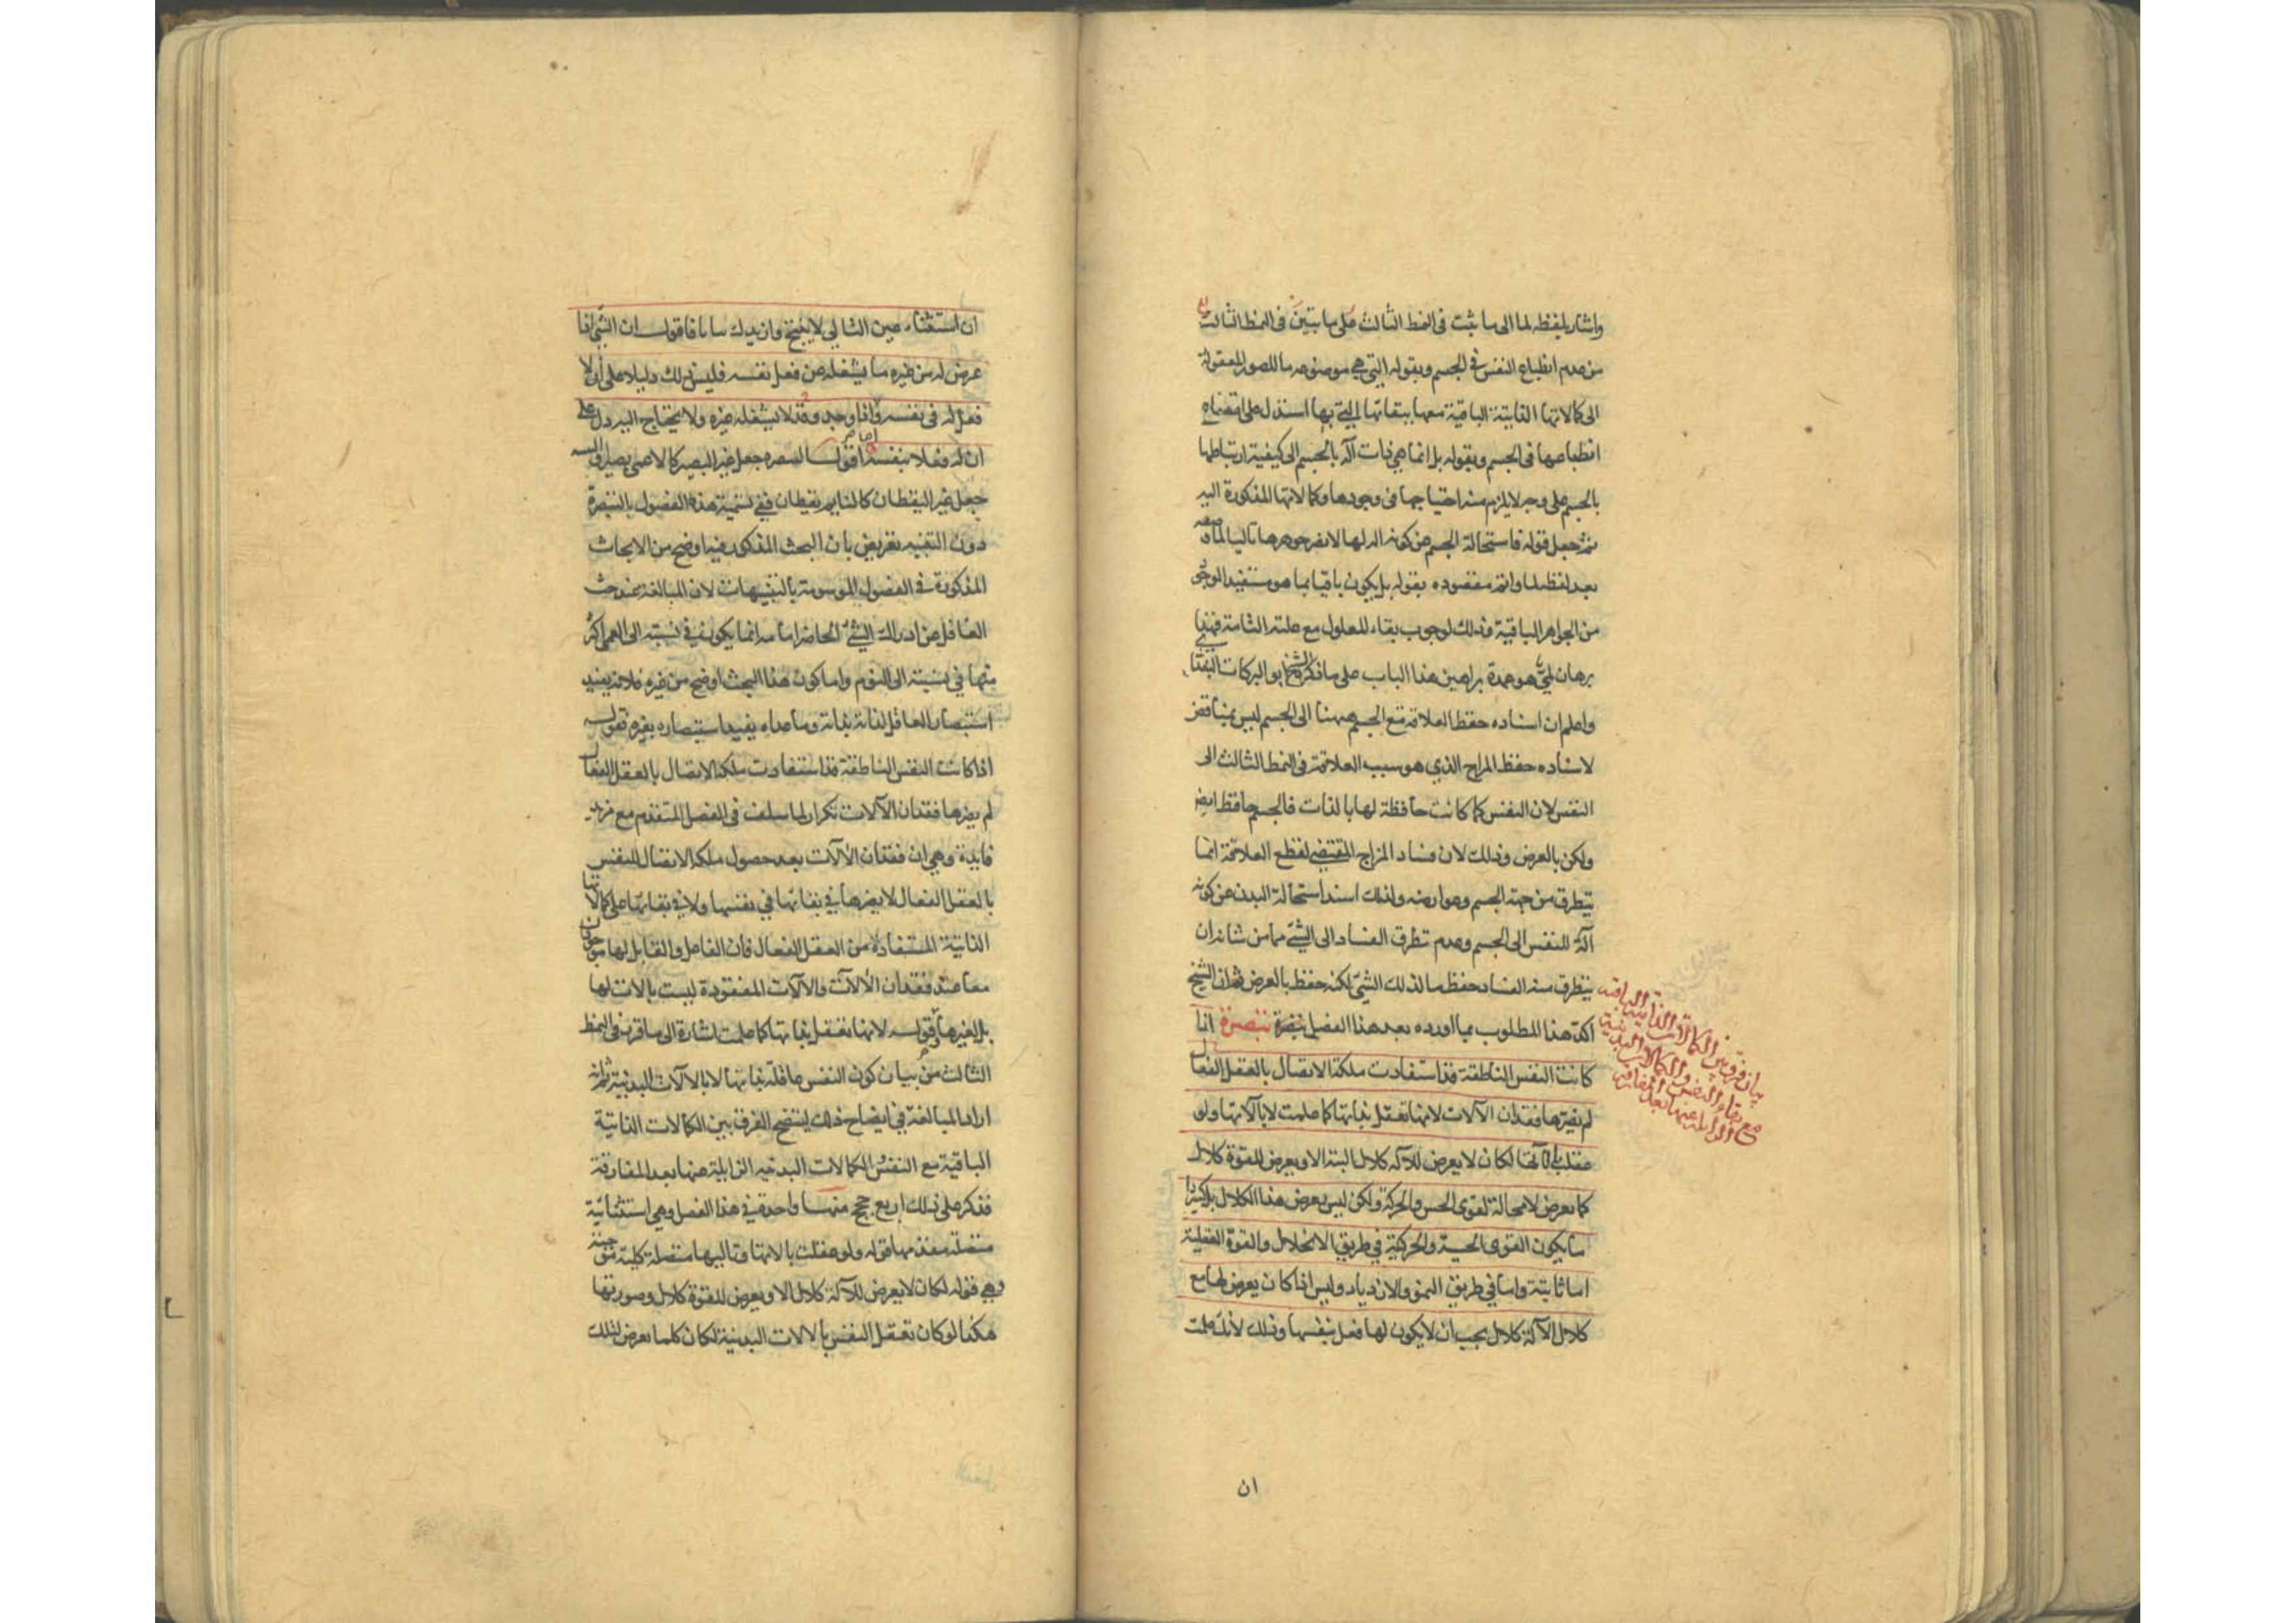 واشار بلفظه لما الى ما ثبت فى النمط الثالث على ما تبين فى النمط الثالث
من عدم انطباع النفس فى الجسم وبقوله التى هى موضوعة ما للصور المعقولة
الى كمالاتها الذاتية الباقية معها ببقائها التى بها استدل على امتناع
انطباعها فى الجسم وبقوله بل انما هى ذات آلة بالجسم الى كيفية ارتباطها
بالجسم على وجه لا يلزم منه احتياجها فى وجودها وكمالاتها المذكورة اليه
ثم جعل قوله فاستحالة الجسم عن كونه آلة لها لا تضر جوهرها تاليا لما وضعه
بعد لفظة لما واتم مقصوده بقوله بل يكون باقيا بما هو مستفيد الوجود
من الجواهر الباقية وذلك لوجوب بقاء المعلول مع علته التامة فهذا
برهان لمى هو عمدة براهين هذا الباب على ما ذكره الشيخ ابو البركات البغدادى
واعلم ان اسناده حفظ العلاقة مع الجسم ههنا الى الجسم ليس بمناقض
لاسناده حفظ المزاج الذي هو سبب العلاقة فى النمط الثالث الى
النفس لان النفس كما كانت حافظة لها بالذات فالجسم حافظ ايضا
ولكن بالعرض وذلك لان فساد المزاج المقتضى لقطع العلاقة انما
يتطرق من جهة الجسم وعوارضه ولذلك اسند استحالة البدن عن كونه
آلة للنفس الى الجسم وعدم تطرق الفساد الى الشئ مما من شانه ان
يتطرق منه الفساد حفظ ما لذلك الشئ لكنه حفظ بالعرض ثم ان الشيخ
اكد هذا المطلوب بما اورده بعد هذا الفصل تبصرة تبصرة اذا
كانت النفس الناطقة قد استفادت ملكة الاتصال بالعقل الفعال
لم يضرها فقدان الآلات لانها تعقل بذاتها كما علمت لا بآلاتها ولو
عقلت بآلاتها لكان لا يعرض للآلة كلال البتة الا ويعرض للقوة كلال
كما يعرض لا محالة لقوى الحس والحركة ولكن ليس يعرض هذا الكلال بل كثيرا
ما يكون القوى الحسية والحركية فى طريق الانحلال والقوة العقلية
اما ثابتة واما فى طريق النمو والازدياد وليس اذا كان يعرض لها مع
كلال الآلة كلال يجب ان لا يكون لها فعل بنفسها وذلك لانك علمت
ان
بيان فرق بين الكمالات الذاتية الباقية
مع بقاء النفس والكمالات البدنية
الزايلة عنها بعد المفارقة
ان استثناء عين التالى لا ينتج وازيدك بيانا فاقول ان الشئ اذا
عرض له من غيره ما يشغله عن فعل نفسه فليس ذلك دليلا على ان لا
فعل له فى نفسه واما اذا وجد وقد لا يشغله غيره ولا يحتاج اليه دل على
ان له فعلا بنفسه اقول التبصرة جعل غير البصير كالاعمى بصيرا والتنبيه
جعل غير اليقظان كالنايم يقظان ففى تسمية هذه الفصول بالتبصرة
دون التنبيه تعريض بان البحث المذكور فيها اوضح من الابحاث
المذكورة فى الفصول الموسومة بالتنبيهات لان المبالغة عند حث
الغافل عن ادراك الشئ الحاضر امامه انما يكون فى نسبته الى العمى اكثر
منها فى نسبته الى النوم واما كون هذا البحث اوضح من غيره فلانه يفيد
استبصار العاقل لذاته بذاته وما عداه يفيد استبصاره بغيره قوله
اذا كانت النفس الناطقة قد استفادت ملكة الاتصال بالعقل الفعال
لم يضرها فقدان الآلات تكرار لما سلف فى الفصل المتقدم مع مزيد
فايدة وهى ان فقدان الآلات بعد حصول ملكة الاتصال للنفس
بالعقل الفعال لا يضرها فى بقائها فى نفسها ولا فى بقائها على كمالاتها
الذاتية المستفادة من العقل الفعال فان الفاعل والقابل لها موجودان
معا عند فقدان الآلات والآلات المفقودة ليست بآلات لها
بل لغيرها وقوله لانها تعقل بذاتها كما علمت اشارة الى ما قرره فى النمط
الثالث من بيان كون النفس عاقلة بذاتها لا بالآلات البدنية ثم انه
اراد المبالغة فى ايضاح ذلك ليتضح الفرق بين الكمالات الذاتية
الباقية مع النفس والكمالات البدنية الزايلة عنها بعد المفارقة
فذكر على ذلك اربع حجج منها واحدة فى هذا الفصل وهى استثنائية
متصلة مقدمها قوله ولو عقلت بآلاتها وتاليها متصلة كلية موجبة
وهى قوله لكان لا يعرض للآلة كلال الا ويعرض للقوة كلال وصورتها
هكذا لو كان تعقل النفس بالآلات البدنية لكان كلما يعرض لتلك